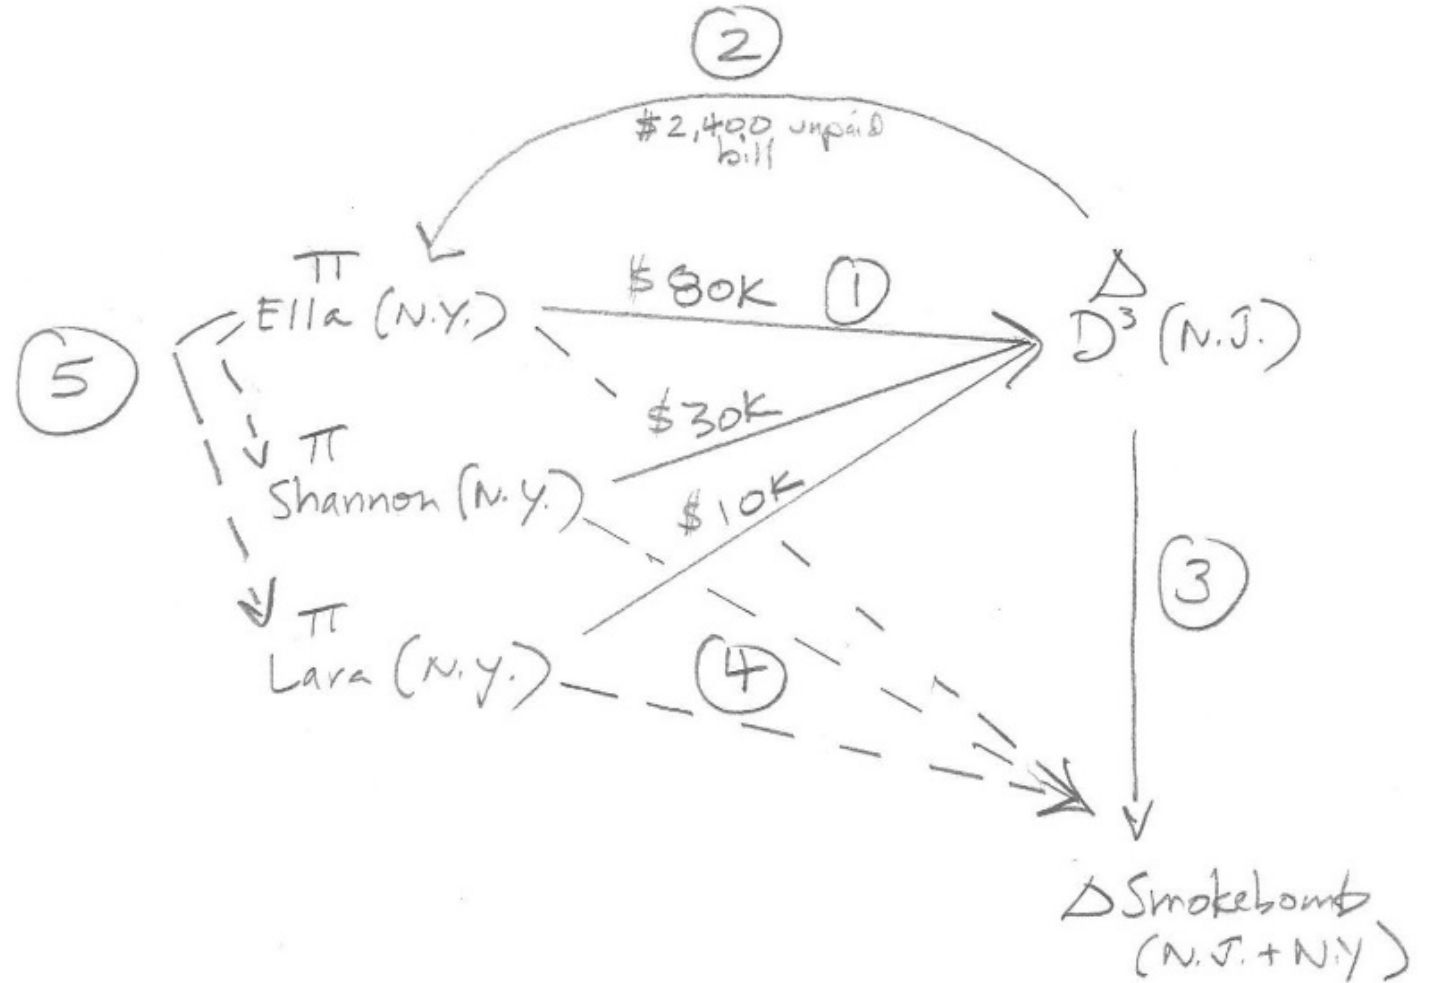 2
$2,400 unpaid
bill
π
Ella (N.Y.)
$80K
1
Δ
D³ (N.J.)
5
$30K
π
Shannon (N.Y.)
$10K
3
π
Lara (N.Y.)
4
Δ Smokebomb
(N.J. + N.Y)